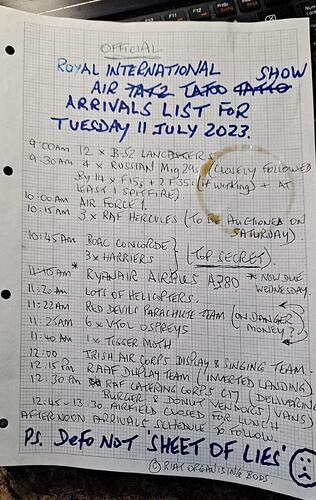 OFFICIAL
ROYAL INTERNATIONAL
AIR TAT2 TATOO TATTO SHOW
ARRIVALS LIST FOR
TUESDAY 11 JULY 2023.
9:00AM 12 x B-52 LANCASTERS
9:30AM 4 x RUSSIAN Mig 29s (CLOSELY FOLLOWED
By 14 x F15s + 2 F35s (if working) + AT
LEAST 1 SPITFIRE)
10:00AM AIR FORCE 1.
10:15AM 3 x RAF HERCULES (To BE AUCTIONED ON
SATURDAY)
10:45AM BOAC CONCORDE
3 x HARRIERS } (TOP SECRET).
11:10AM * RYANAIR AIRBUS A380 * NOW DUE
WEDNESDAY.
11:20AM LOTS OF HELICOPTERS.
11:22AM RED DEVILS PARACHUTE TEAM (ON DANGER
11:25AM 6 x VTOL OSPREYS MONEY?)
11:40AM 1 x TIGGER MOTH
12:00 IRISH AIR CORPS DISPLAY & SINGING TEAM
12:15PM RAAF DISPLAY TEAM (INVERTED LANDING)
12:30PM RAF CATERING CORPS C17 (DELIVERING
BURGER & DONUT VENDORS VANS)
12:45-13:30 AIRFIELD CLOSED FOR LUNCH
AFTERNOON ARRIVALS SCHEDULE TO FOLLOW.
PS. DEFO NOT 'SHEET OF LIES'
© RIAT ORGANISING BODS.